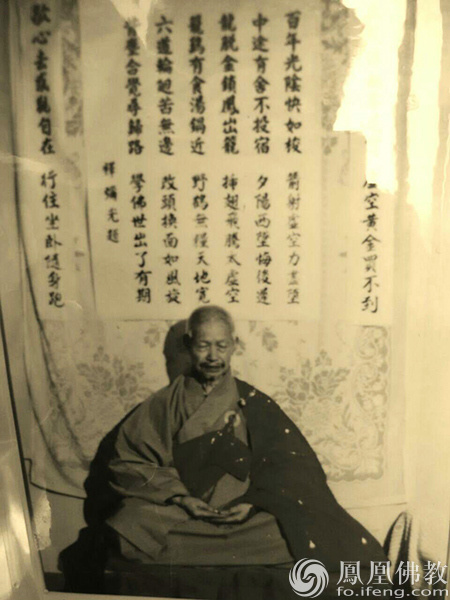 空黃金買不到
百年光陰快如梭 箭射虛空力盡墜
中途有舍不投宿 夕陽西墜悔後遲
龍脫金鎖鳳出籠 翅飛騰太虛空
籠鷄有食湯鍋近 野鶴無糧天地寬
六道輪迴苦無邊 改頭換面如風旋
塵合覺尋歸路 學佛世出了有期
釋 光題
心 自在 行住坐卧隨身跑
鳳凰佛教
fo.ifeng.com